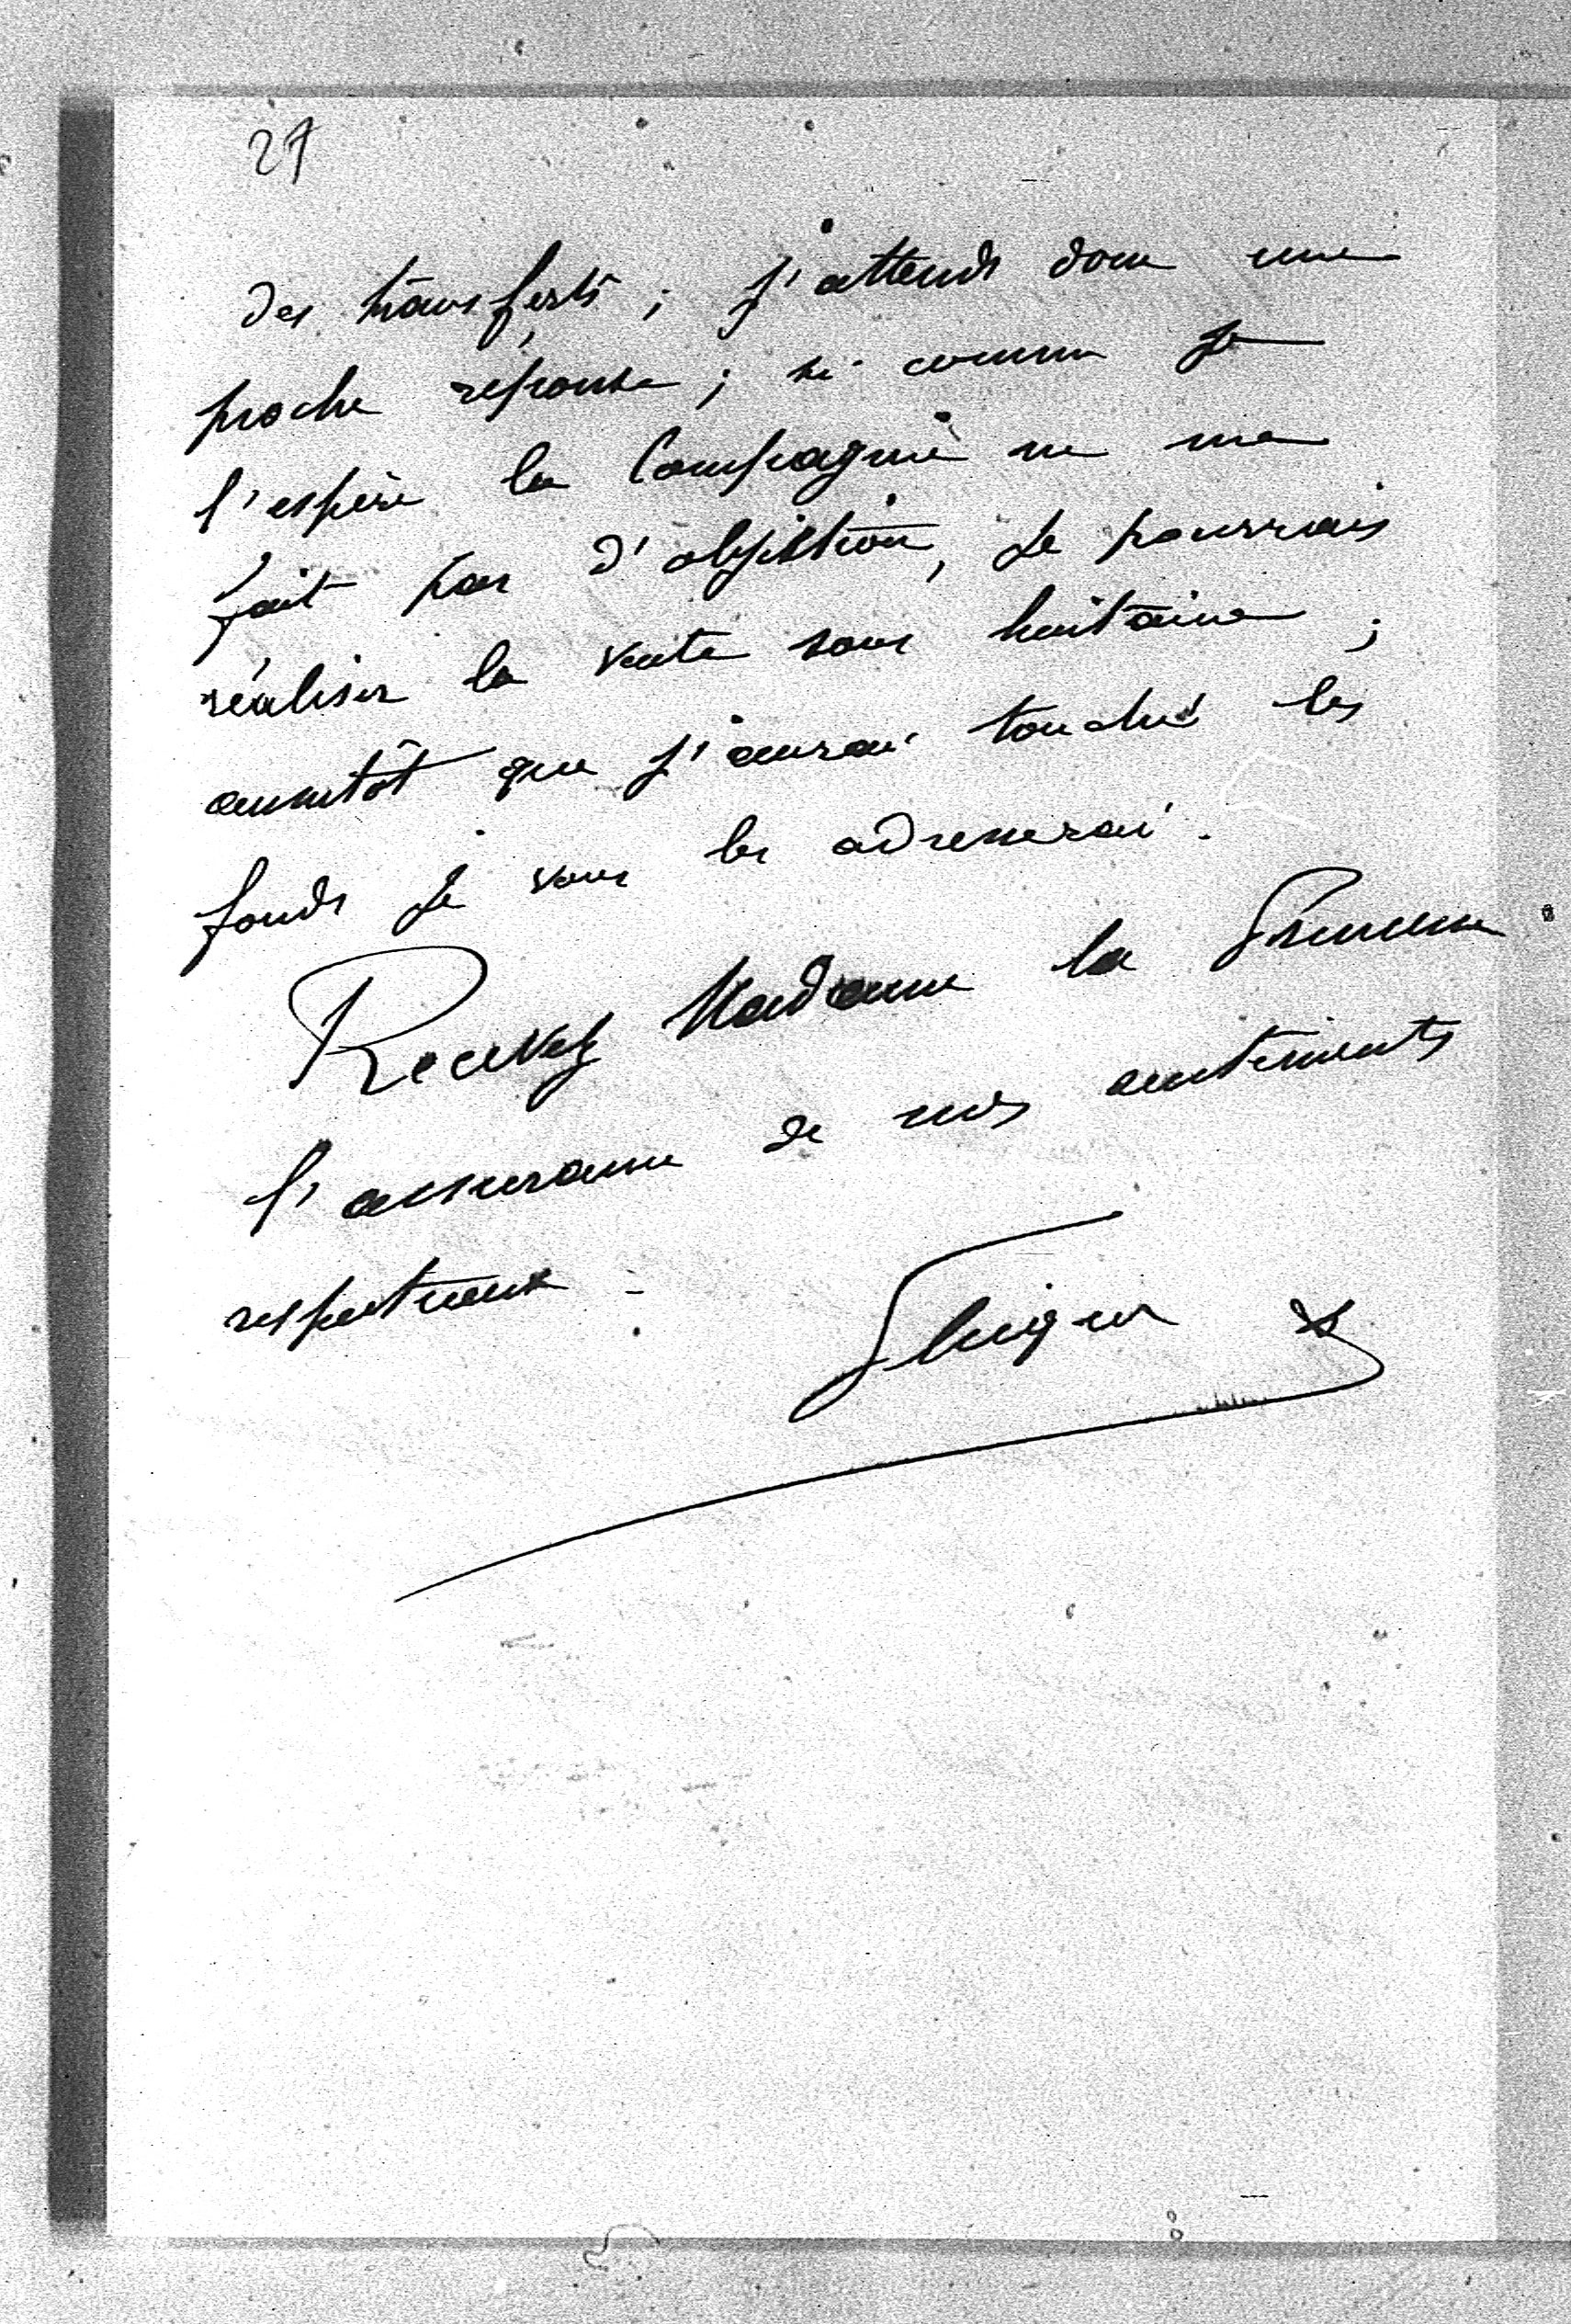 27
des transferts ; j'attends donc une
proche réponse ; si comme je
l'espère la Compagnie ne me
fait pas d'objection, je pourrais
réaliser la vente sous huitaine ;
aussitôt que j'aurai touché les
fonds je vous les adresserai.
Recevez Madame la Princesse
l'assurance de mes sentiments
respectueux.